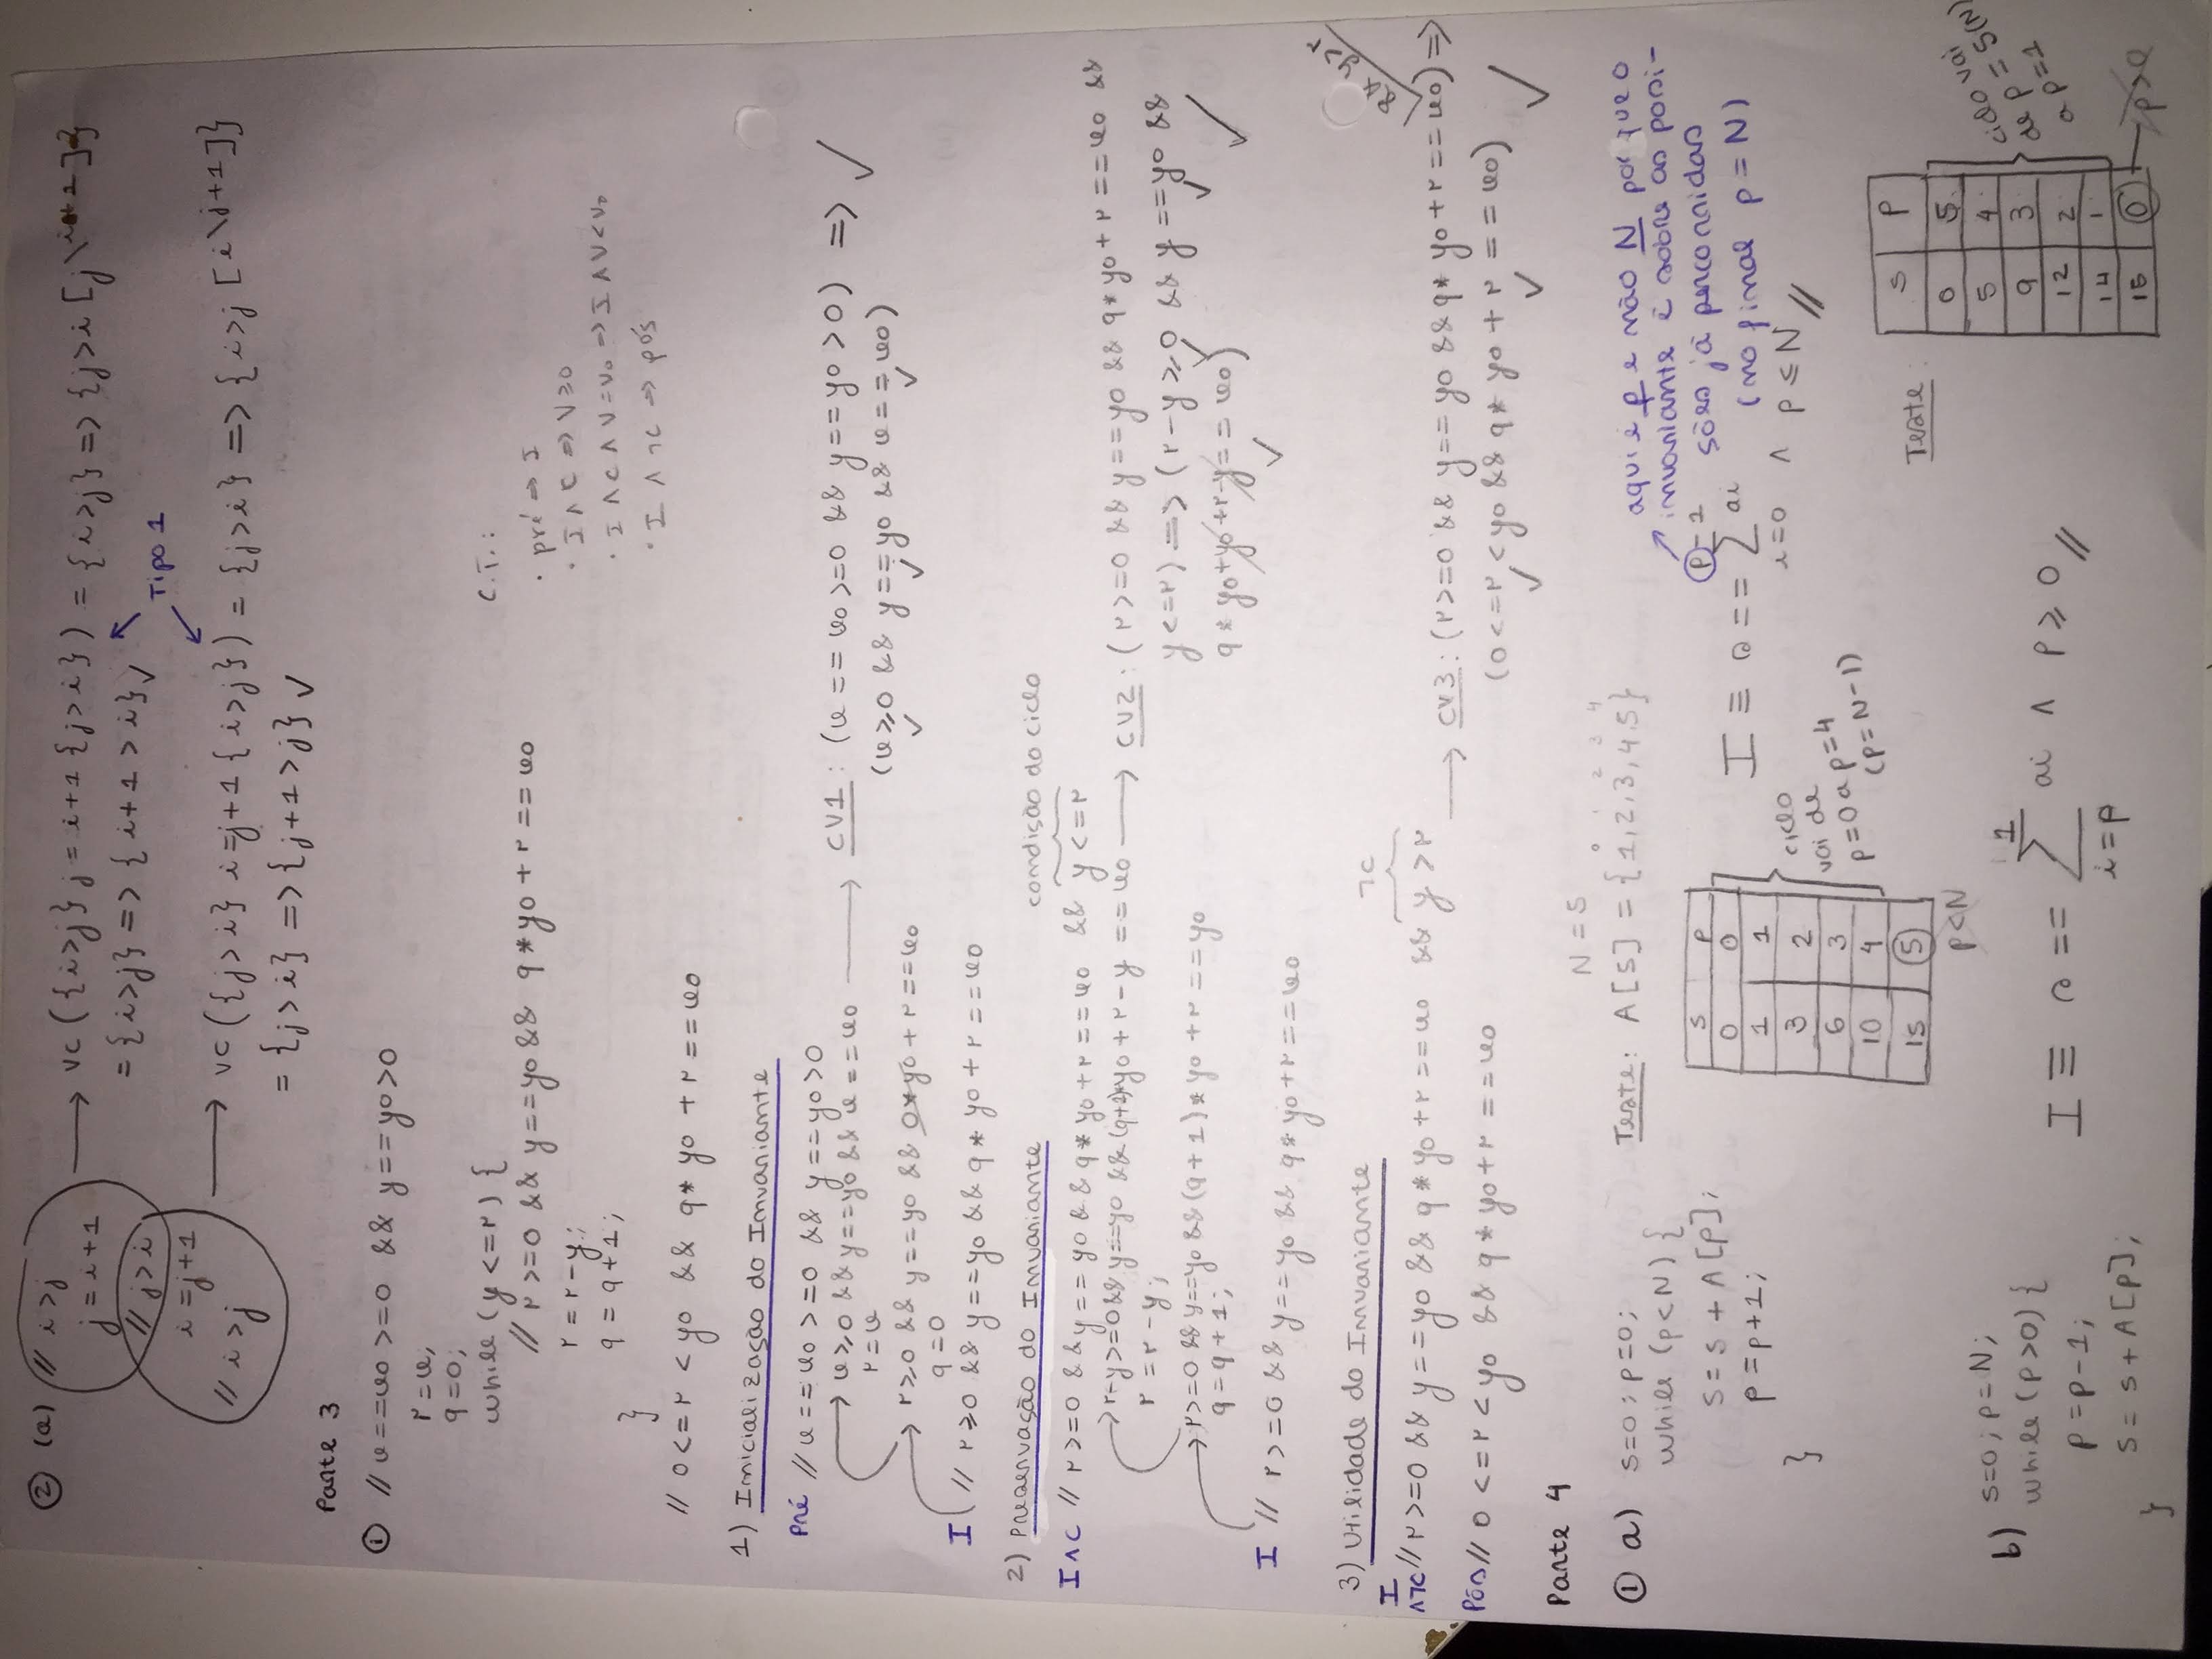 ② (a) // i>j
j = i+1
// j>i
i = j+1
// i>j
→ VC ({i>j} j = i+1 {j>i}) = {i>j} => {j>i [j\i+1]}
= {i>j} => {i+1 > i} ✓
Tipo 1
→ VC ({j>i} i=j+1 {i>j}) = {j>i} => {i>j [i\j+1]}
= {j>i} => {j+1>j} ✓
Parte 3
① // x==x0 >=0 && y==y0>0
r = x;
q=0;
while (y <=r) {
// r >=0 && y==y0 && q*y0 + r == x0
r = r-y;
q = q+1;
}
// 0<=r < y0 && q* y0 + r == x0
C.T.:
· pré => I
· I ∧ C => V≥0
· I ∧ C ∧ V=V0 => I ∧ V<V0
· I ∧ ¬C => pós
1) Inicialização do Invariante
Pré // x == x0 >=0 && y==y0>0
→ x≥0 && y==y0 && x ==x0 → CV1 : (x == x0 >=0 && y==y0 > 0) => ✓
r=x (x≥0 && y==y0 && x==x0)
→ r≥0 && y==y0 && 0*y0 + r ==x0
q=0
I // r≥0 && y==y0 && q* y0 + r ==x0
2) Preservação do Invariante
condição do ciclo
I∧C // r>=0 && y== y0 && q*y0+r==x0 && y<=r
→ r-y>=0 && y==y0 && (q+1)*y0 + r-y == x0 → CV2 : (r>=0 && y==y0 && q*y0+r ==x0 &&
r = r-y; y<=r) => (r-y≥0 && y==y0 &&
→ r>=0 && y==y0 && (q+1)*y0 +r ==y0 q* y0+y0+r-y== x0) ✓
q = q+1;
I // r>=0 && y==y0 && q*y0+r==x0
3) Utilidade do Invariante
¬C
I
∧¬C // r>=0 && y==y0 && q*y0+r==x0 && y >r
&& y>r
→ CV3 : (r>=0 && y==y0 && q* y0+r==x0) =>
Pós // 0 <=r < y0 && q*y0+r ==x0
(0<=r <y0 && q* y0 + r == x0) ✓
Parte 4
① a) s=0; p=0;
while (p<N) {
s= s + A[p];
p=p+1;
}
N = 5
0 1 2 3 4
Teste: A[5] = {1,2,3,4,5}
s p
0 0
1 1
3 2
6 3
10 4
15 5
p<N
ciclo
vai de
p=0 a p=4
(p=N-1)
aqui é p e não N porque o
invariante é sobre as posi-
ções já percorridas
(no final p = N)
p-1
I ≡ s == ∑ ai
i=0 ∧ p ≤ N //
b) s=0; p=N;
while (p>0) {
p=p-1;
s= s+A[p];
}
1
I ≡ s == ∑ ai ∧ p ≥ 0 //
i=p
Teste :
s p
0 5
5 4
9 3
12 2
14 1
15 0
p>0
ciclo vai
de p=5(N)
a p=1